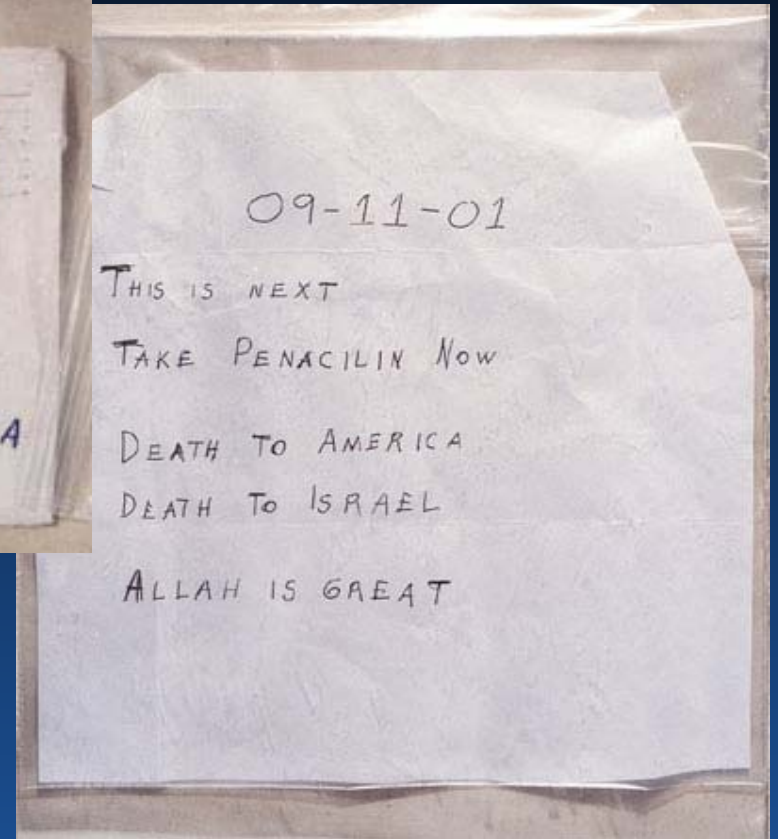 A
09-11-01
THIS IS NEXT
TAKE PENACILIN NOW
DEATH TO AMERICA
DEATH TO ISRAEL
ALLAH IS GREAT